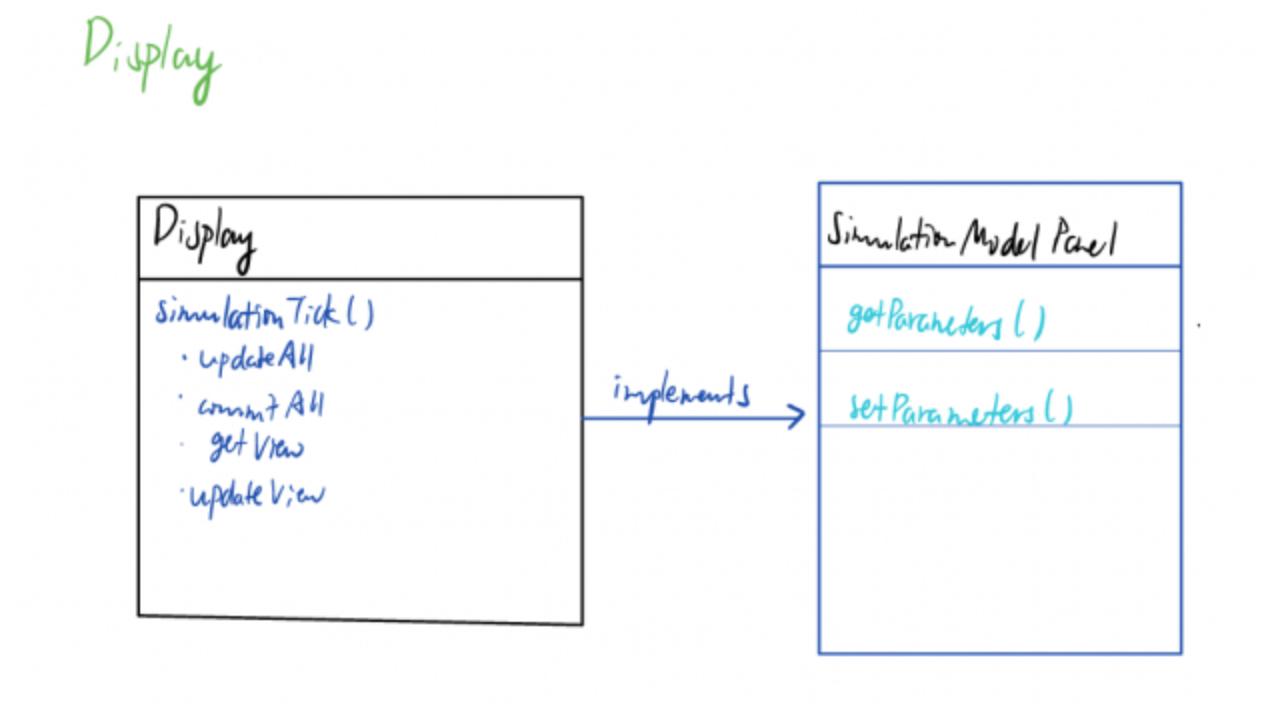 Display
Display
simulationTick()
· updateAll
· commitAll
· getView
· updateView
implements
SimulationModel Panel
getParameters()
setParameters()